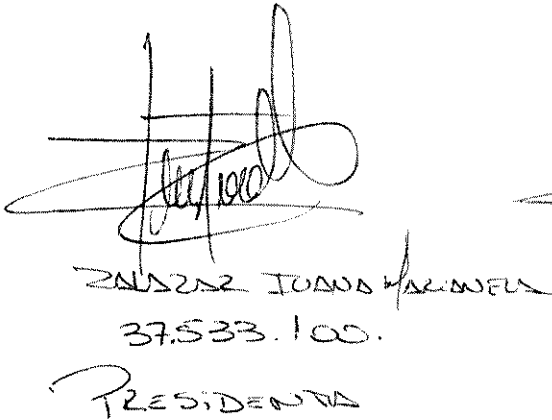 ZALAZAR JUANA MARIANELA
37.533.100.
PRESIDENTA